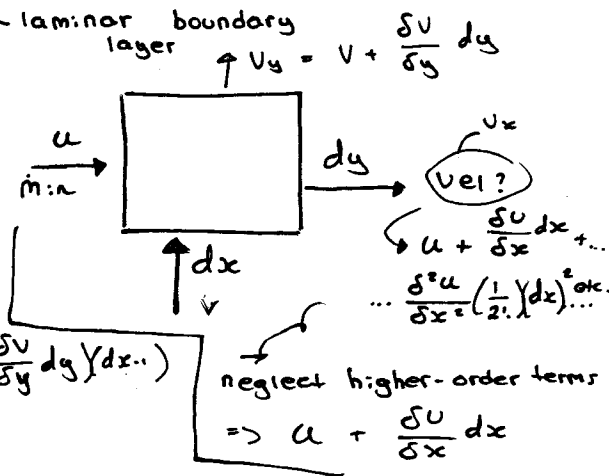 laminar boundary
layer
Vy = V + δV/δy dy
u
ṁin
dy
Vx
Vel?
u + δU/δx dx +...
dx
v
... δ²u/δx² (1/2!)(dx)² etc...
δV/δy dy)(dx..)
neglect higher-order terms
=> u + δU/δx dx